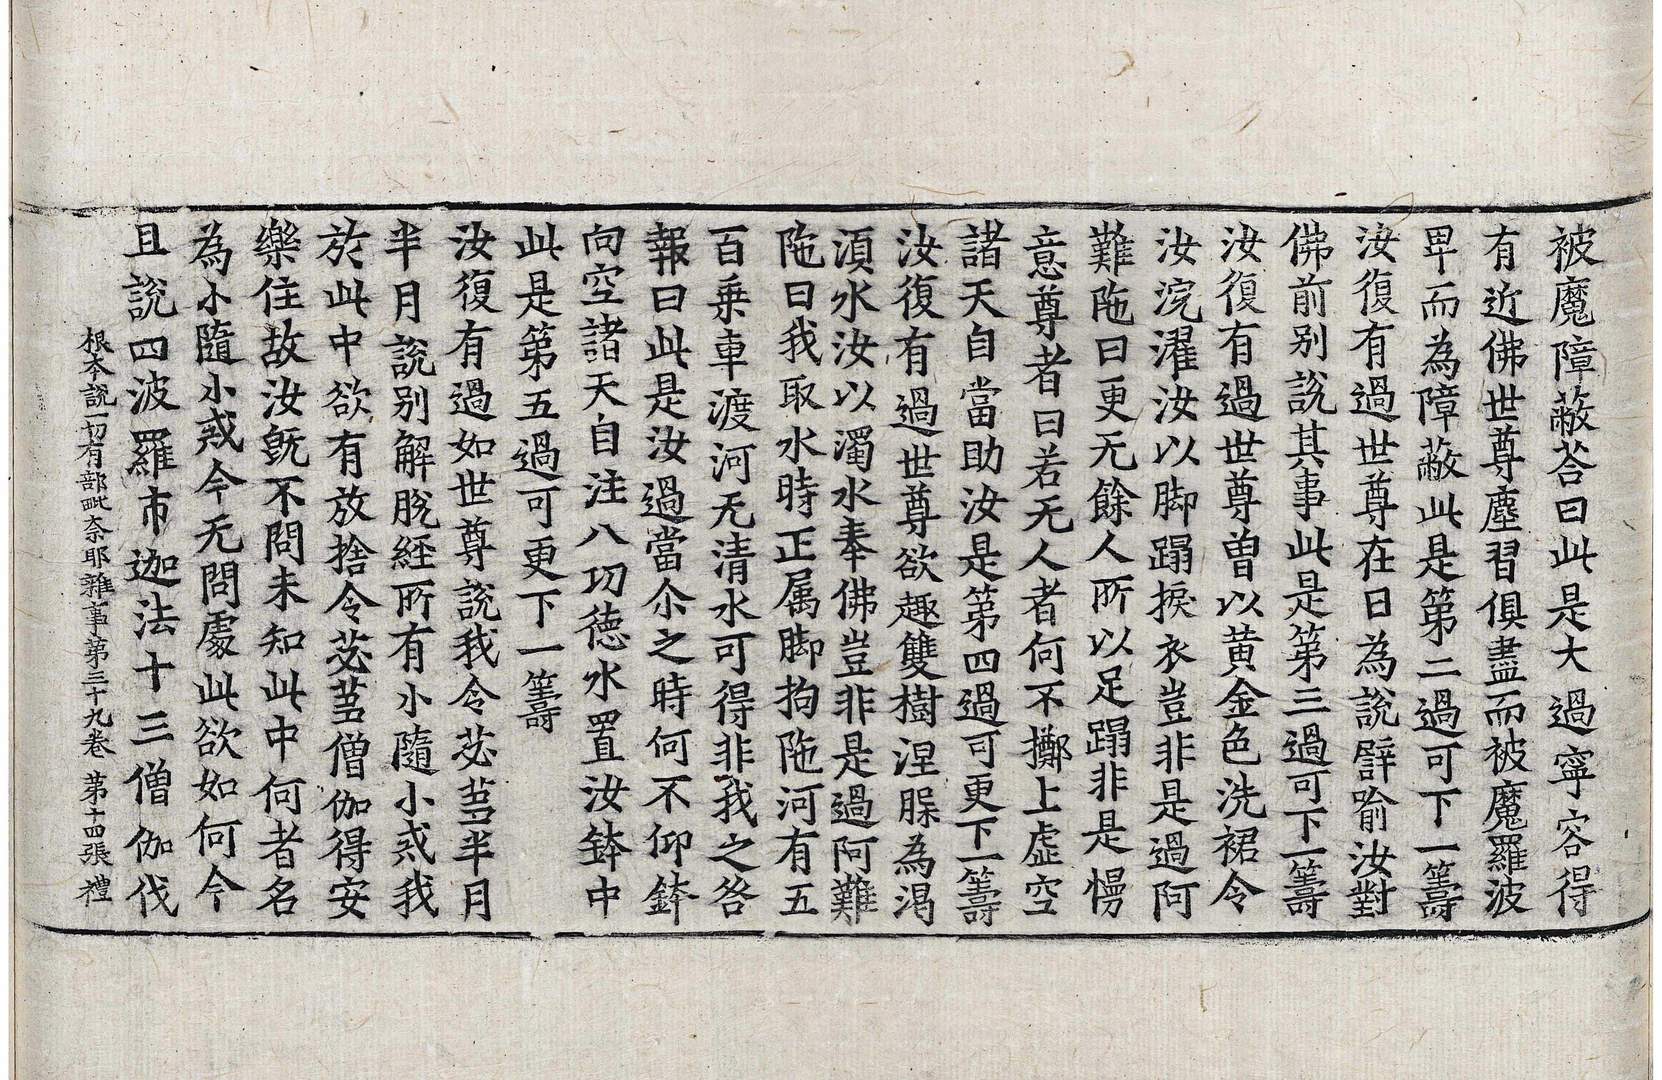 被魔障蔽荅曰此是大過寧容得
有近佛世尊塵習俱盡而被魔羅波
卑而為障蔽此是第二過可下一籌
汝復有過世尊在日為說譬喻汝對
佛前别說其事此是第三過可下一籌
汝復有過世尊曽以黄金色洗裙令
汝浣濯汝以脚蹋捩衣豈非是過阿
難陁曰更无餘人所以足蹋非是慢
意尊者曰若无人者何不擲上虛空
諸天自當助汝是第四過可更下一籌
汝復有過世尊欲趣雙樹涅槃為渴
湏水汝以濁水奉佛豈非是過阿難
陁曰我取水時正属脚拘陁河有五
百乗車渡河无清水可得非我之咎
報曰此是汝過當尒之時何不仰鉢
向空諸天自注八㓛徳水置汝鉢中
此是第五過可更下一籌
汝復有過如世尊說我令苾蒭半月
半月說别解脫經所有小隨小戒我
於此中欲有放捨令苾蒭僧伽得安
樂住故汝旣不問未知此中何者名
為小隨小戒今无問處此欲如何今
且說四波羅市迦法十三僧伽伐
根夲說一切有部毗奈耶雜事第三十九卷 第十四張 禮